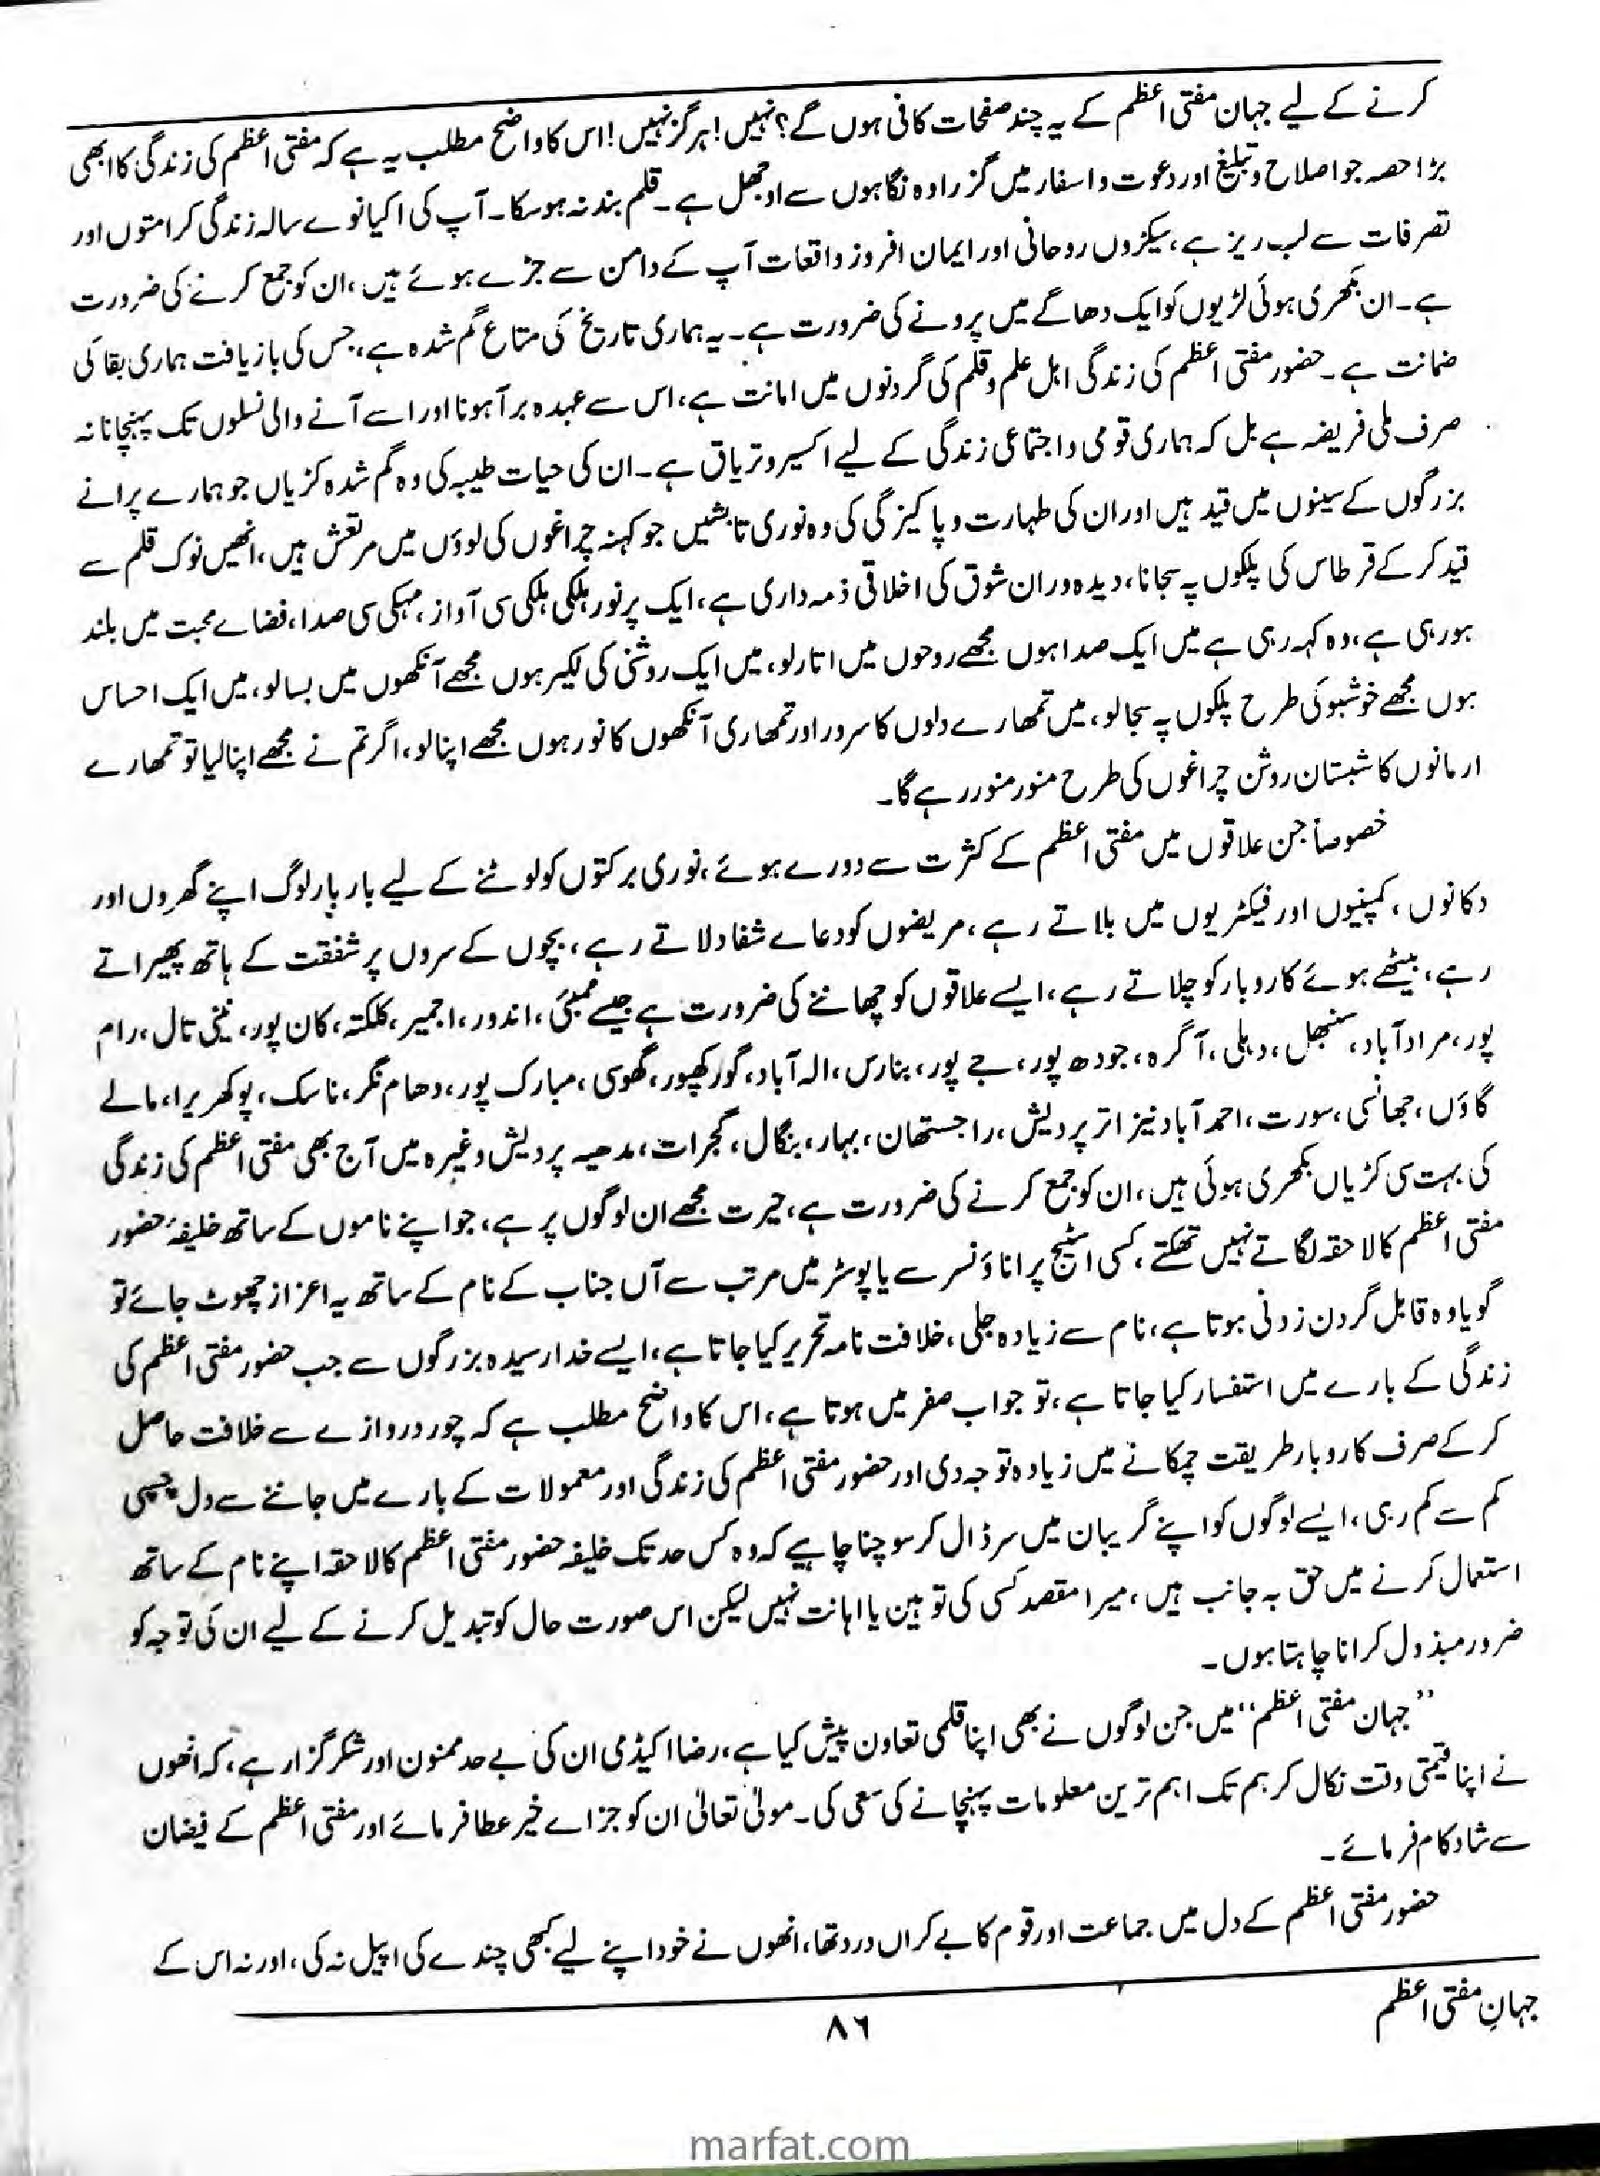 کرنے کے لیے جہان مفتی اعظم کے یہ چند صفحات کافی ہوں گے؟ نہیں! ہرگز نہیں! اس کا واضح مطلب یہ ہے کہ مفتی اعظم کی زندگی کا ابھی
بڑا حصہ جو اصلاح و تبلیغ اور دعوت و اسفار میں گزرا وہ نگاہوں سے اوجھل ہے۔ قلم بند نہ ہو سکا۔ آپ کی اکیانوے سالہ زندگی کرامتوں اور
تصرفات سے لب ریز ہے، سیکڑوں روحانی اور ایمان افروز واقعات آپ کے دامن سے جڑے ہوئے ہیں، ان کو جمع کرنے کی ضرورت
ہے۔ ان بکھری ہوئی لڑیوں کو ایک دھاگے میں پرونے کی ضرورت ہے۔ یہ ہماری تاریخ کی متاع گم شدہ ہے، جس کی بازیافت ہماری بقا کی
ضمانت ہے۔ حضور مفتی اعظم کی زندگی اہل علم و قلم کی گردنوں میں امانت ہے، اس سے عہدہ برآ ہونا اور اسے آنے والی نسلوں تک پہنچانا نہ
صرف ملی فریضہ ہے بل کہ ہماری قومی و اجتماعی زندگی کے لیے اکسیر و تریاق ہے۔ ان کی حیات طیبہ کی وہ گم شدہ کڑیاں جو ہمارے پرانے
بزرگوں کے سینوں میں قید ہیں اور ان کی طہارت و پاکیزگی کی وہ نوری تابشیں جو کہنہ چراغوں کی لوؤں میں مرتعش ہیں، انھیں نوک قلم سے
قید کر کے قرطاس کی پلکوں پہ سجانا، دیدہ وران شوق کی اخلاقی ذمہ داری ہے، ایک پرنور ہلکی ہلکی سی آواز، مہکی سی صدا، فضاے محبت میں بلند
ہو رہی ہے، وہ کہہ رہی ہے میں ایک صدا ہوں مجھے روحوں میں اتار لو، میں ایک روشنی کی لکیر ہوں مجھے آنکھوں میں بسا لو، میں ایک احساس
ہوں مجھے خوشبو کی طرح پلکوں پہ سجا لو، میں تمھارے دلوں کا سرور اور تمھاری آنکھوں کا نور ہوں مجھے اپنا لو، اگر تم نے مجھے اپنا لیا تو تمھارے
ارمانوں کا شبستان روشن چراغوں کی طرح منور منور رہے گا۔
خصوصاً جن علاقوں میں مفتی اعظم کے کثرت سے دورے ہوئے، نوری برکتوں کو لوٹنے کے لیے بار بار لوگ اپنے گھروں اور
دکانوں، کمپنیوں اور فیکٹریوں میں بلاتے رہے، مریضوں کو دعاے شفا دلاتے رہے، بچوں کے سروں پر شفقت کے ہاتھ پھیراتے
رہے، بیٹھے ہوئے کاروبار کو چلاتے رہے، ایسے علاقوں کو چھاننے کی ضرورت ہے جیسے ممبئی، اندور، اجمیر، کلکتہ، کان پور، نینی تال، رام
پور، مرادآباد، سنبھل، دہلی، آگرہ، جودھ پور، جے پور، بنارس، الہ آباد، گورکھپور، گھوسی، مبارک پور، دھام نگر، ناسک، پوکھریرا، مالے
گاؤں، جھانسی، سورت، احمدآباد نیز اتر پردیش، راجستھان، بہار، بنگال، گجرات، مدھیہ پردیش وغیرہ میں آج بھی مفتی اعظم کی زندگی
کی بہت سی کڑیاں بکھری ہوئی ہیں، ان کو جمع کرنے کی ضرورت ہے، حیرت مجھے ان لوگوں پر ہے، جو اپنے ناموں کے ساتھ خلیفۂ حضور
مفتی اعظم کا لاحقہ لگاتے نہیں تھکتے، کسی اسٹیج پر اناؤنسر سے یا پوسٹر میں مرتب سے آں جناب کے نام کے ساتھ یہ اعزاز چھوٹ جائے تو
گویا وہ قابل گردن زدنی ہوتا ہے، نام سے زیادہ جلی، خلافت نامہ تحریر کیا جاتا ہے، ایسے خدا رسیدہ بزرگوں سے جب حضور مفتی اعظم کی
زندگی کے بارے میں استفسار کیا جاتا ہے، تو جواب صفر میں ہوتا ہے، اس کا واضح مطلب ہے کہ چور دروازے سے خلافت حاصل
کر کے صرف کاروبار طریقت چمکانے میں زیادہ توجہ دی اور حضور مفتی اعظم کی زندگی اور معمولات کے بارے میں جاننے سے دل چسپی
کم سے کم رہی، ایسے لوگوں کو اپنے گریبان میں سر ڈال کر سوچنا چاہیے کہ وہ کس حد تک خلیفہ حضور مفتی اعظم کا لاحقہ اپنے نام کے ساتھ
استعمال کرنے میں حق بہ جانب ہیں، میرا مقصد کسی کی توہین یا اہانت نہیں لیکن اس صورت حال کو تبدیل کرنے کے لیے ان کی توجہ کو
ضرور مبذول کرانا چاہتا ہوں۔
"جہان مفتی اعظم" میں جن لوگوں نے بھی اپنا قلمی تعاون پیش کیا ہے، رضا اکیڈمی ان کی بے حد ممنون اور شکر گزار ہے، کہ انھوں
نے اپنا قیمتی وقت نکال کر ہم تک اہم ترین معلومات پہنچانے کی سعی کی۔ مولیٰ تعالیٰ ان کو جزاے خیر عطا فرمائے اور مفتی اعظم کے فیضان
سے شاد کام فرمائے۔
حضور مفتی اعظم کے دل میں جماعت اور قوم کا بے کراں درد تھا، انھوں نے خود اپنے لیے کبھی چندے کی اپیل نہ کی، اور نہ اس کے
جہانِ مفتی اعظم
۸۶
marfat.com